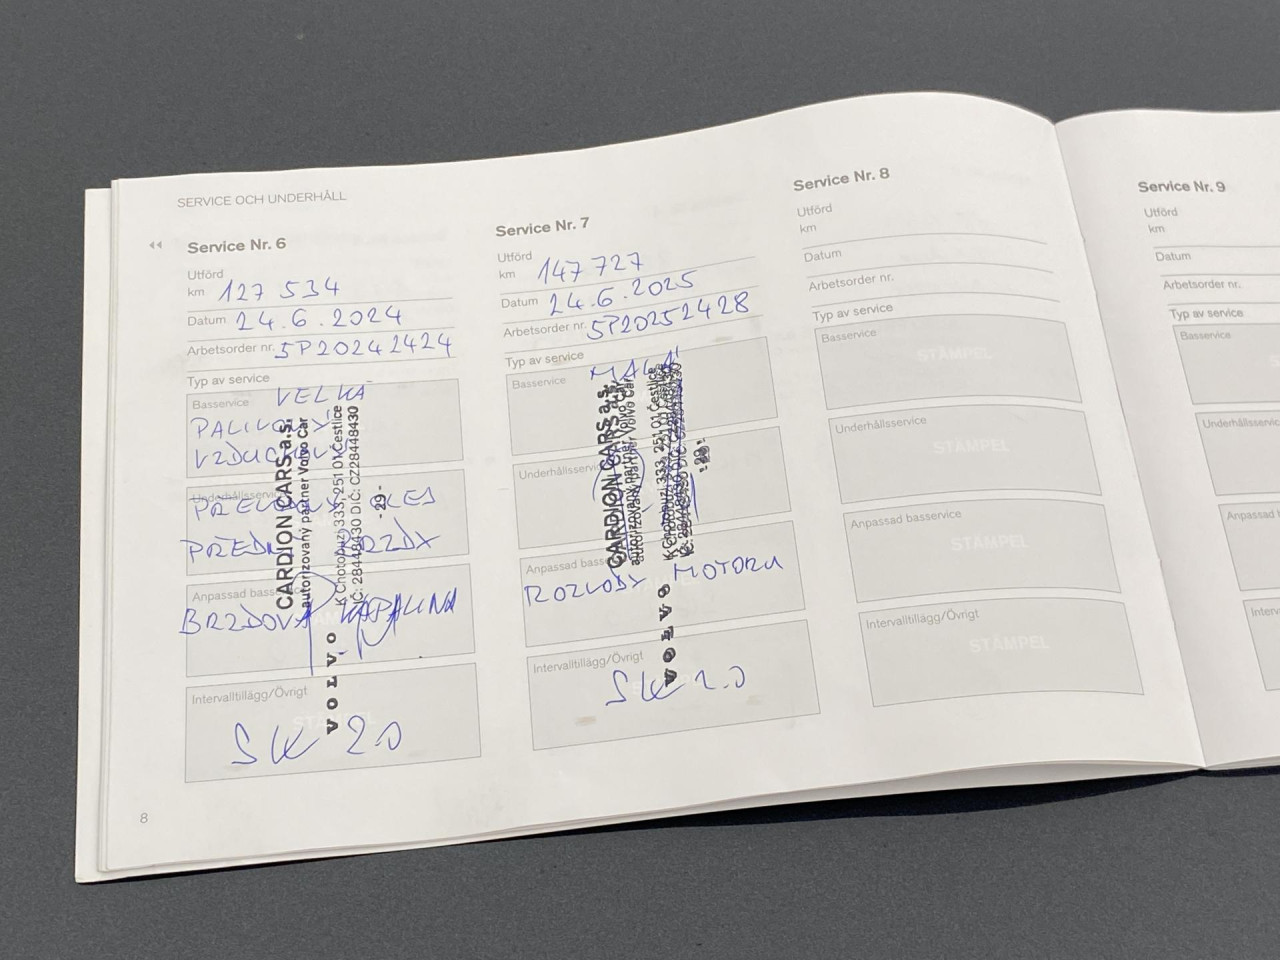 SERVICE OCH UNDERHÅLL
Service Nr. 6
Utförd
km 127 534
Datum 24.6.2024
Arbetsorder nr. SP20242424
Typ av service
Basservice
VELKÁ
PALIVOVÝ
VZDUCHOVÝ
Underhållsservice
PŘEVODOVÝ OLEJ
PŘEDNÍ BRZDY
Anpassad basservice
BRZDOVÁ KAPALINA
Intervalltillägg/Övrigt
STÄMPEL
SK 20
CARDION CARS a.s.
autorizovaný partner Volvo Car
K Chotobuzi 333, 251 01 Čestlice
IČ: 28448430 DIČ: CZ28448430
- 29 -
VOLVO
Service Nr. 7
Utförd
km 147 727
Datum 24.6.2025
Arbetsorder nr. SP20252428
Typ av service
Basservice
MALÁ
Underhållsservice
Anpassad basservice
ROZVODY MOTORU
Intervalltillägg/Övrigt
SK 2.0
CARDION CARS a.s.
autorizovaný partner Volvo Car
K Chotobuzi 333, 251 01 Čestlice
- 29 -
VOLVO
Service Nr. 8
Utförd
km
Datum
Arbetsorder nr.
Typ av service
Basservice
STÄMPEL
Underhållsservice
STÄMPEL
Anpassad basservice
STÄMPEL
Intervalltillägg/Övrigt
STÄMPEL
Service Nr. 9
Utförd
km
Datum
Arbetsorder nr.
Typ av service
Basservice
Underhållsservic
Anpassad b
Interv
8